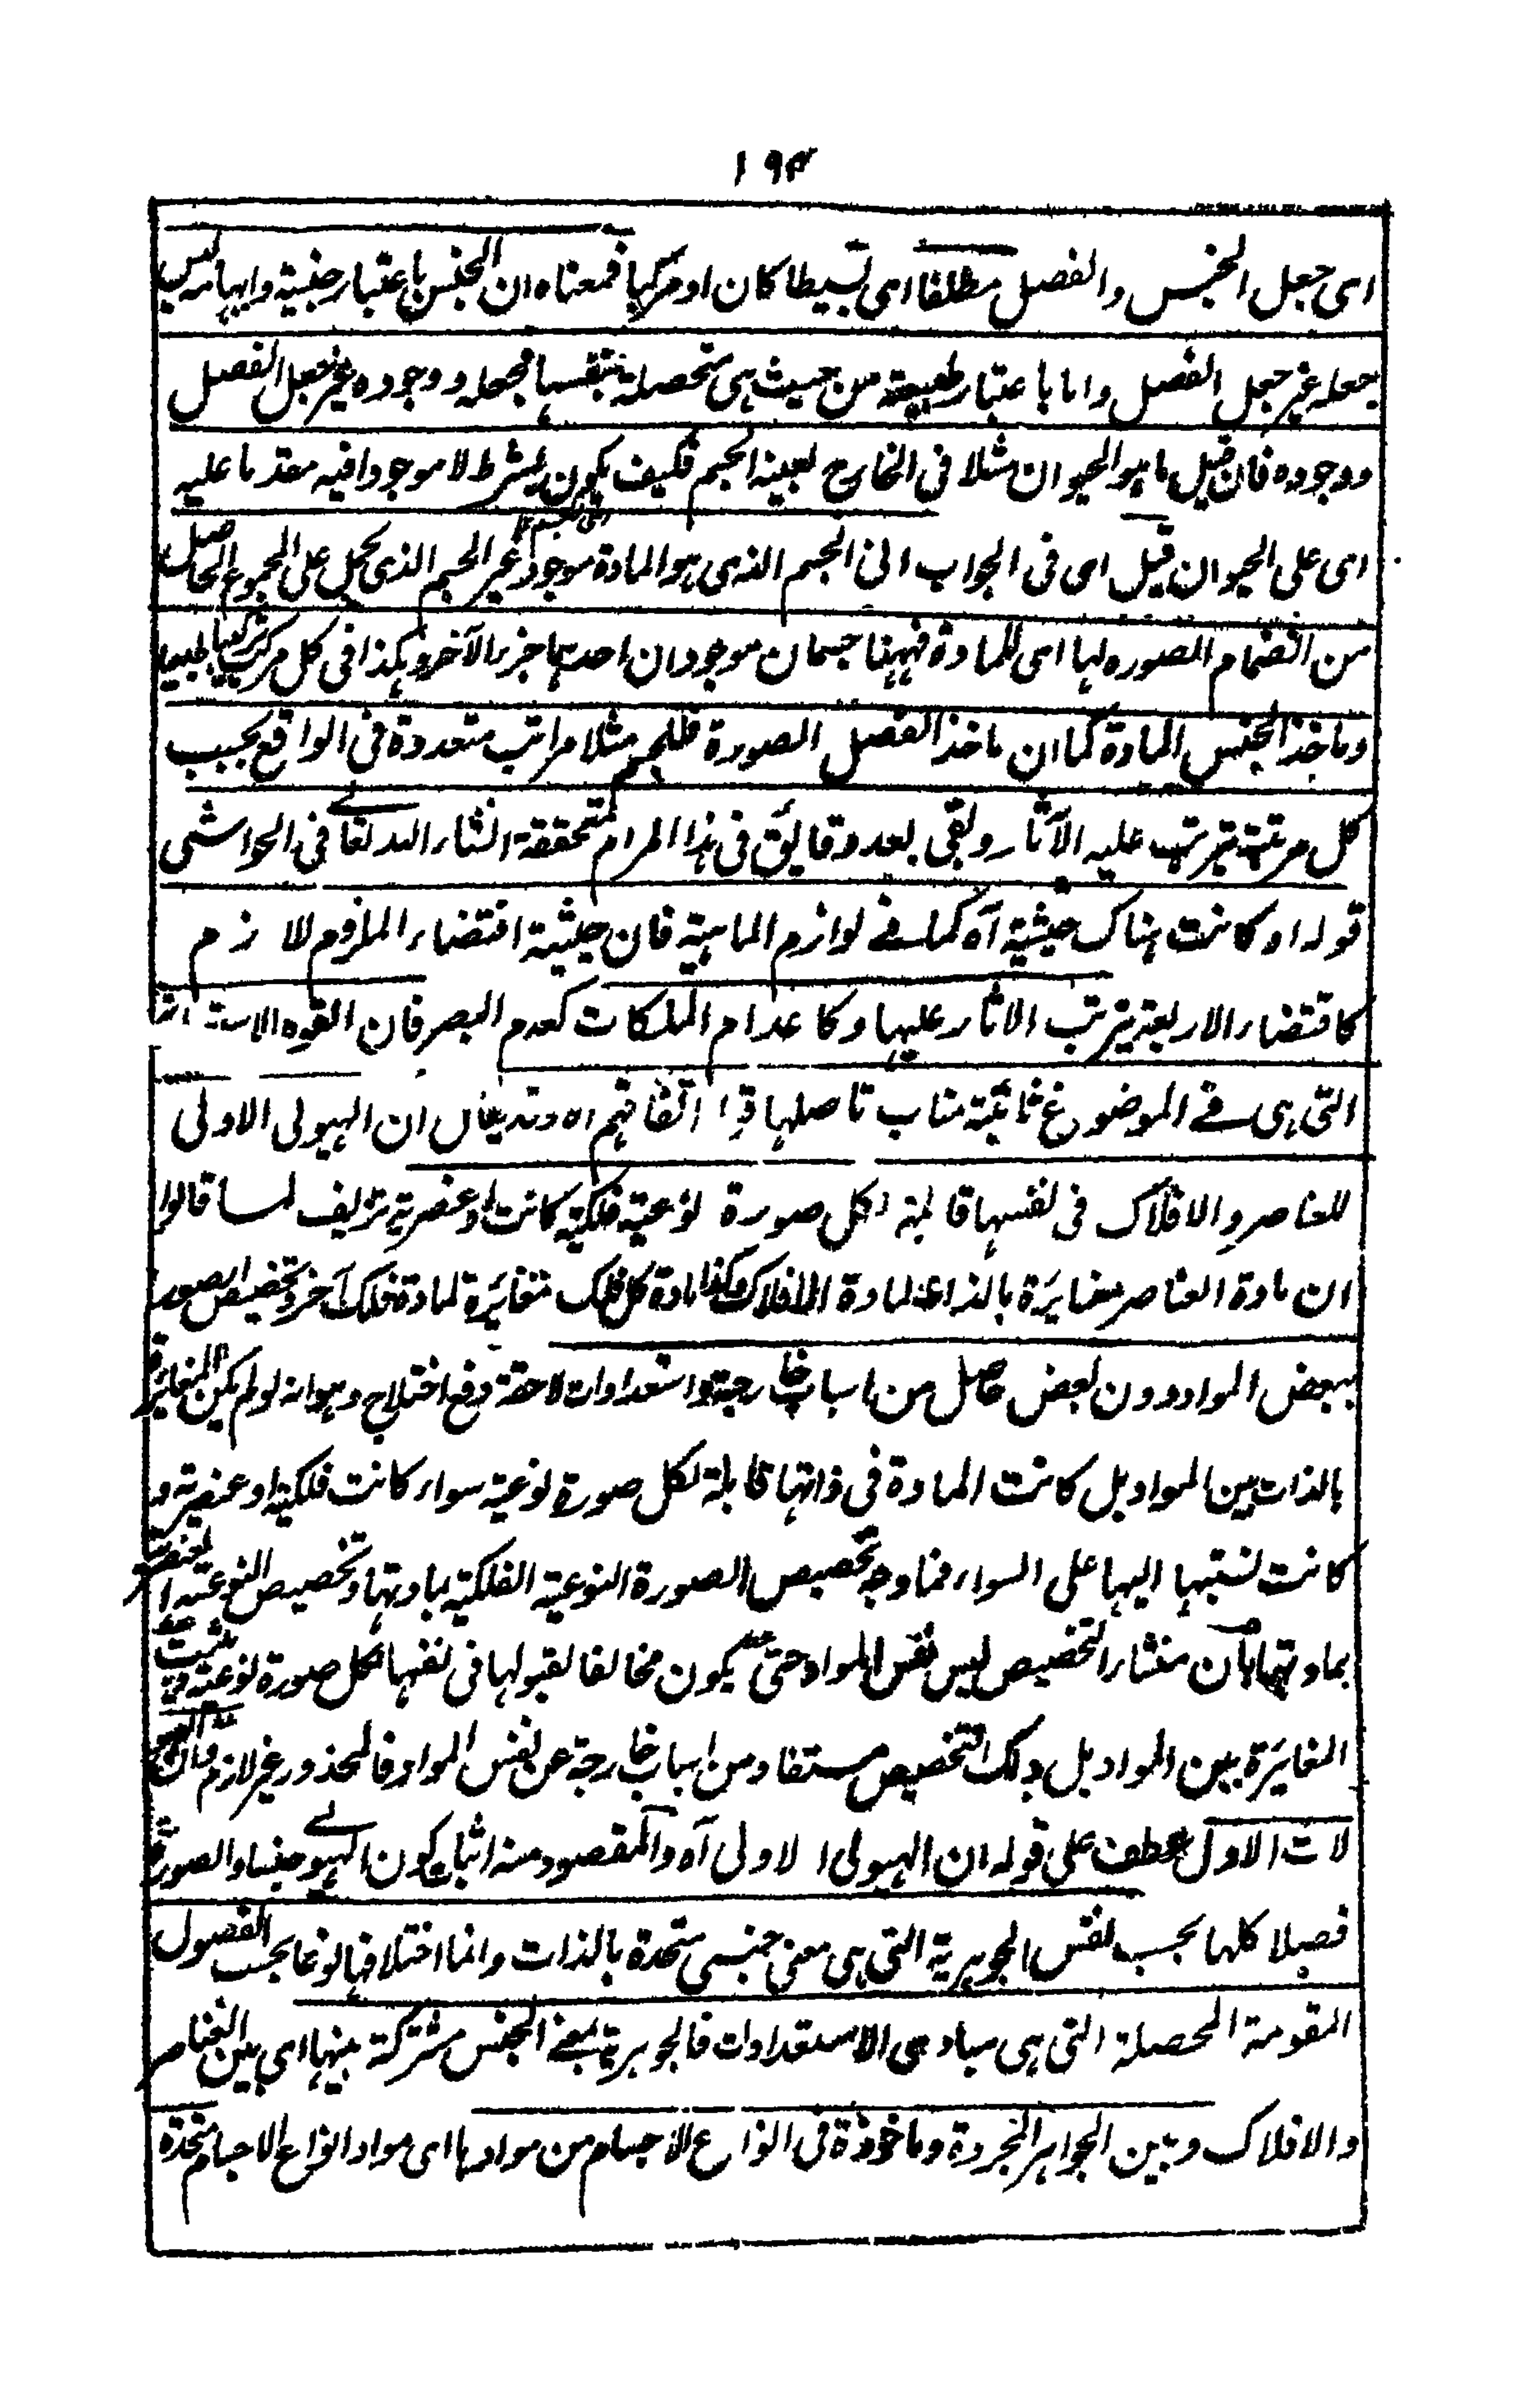 ١٩٣
اى جعل الجنس والفصل مطلقا اى بسيطا كان او مركبا فمعناه ان الجنس باعتبار جنسيته وابهامه ليس
جعله غير جعل الفصل واما باعتبار طبيعته من حيث هى متحصلة بنفسها فجعله ووجوده غير جعل الفصل
ووجوده فان قيل ما هو الحيوان مثلا فى الخارج بعينه الجسم فكيف يكون بشرط لا موجودا فيه مقدما عليه
اى على الحيوان قيل اى فى الجواب ان الجسم الذى هو المادة موجود غير الجسم الذى يحمل على المجموع الحاصل
من انضمام الصوره لها اى للمادة فههنا جسمان موجودان احدهما جزء الآخر وهكذا فى كل مركب تركيبا طبيعيا
وماخذ الجنس المادة كما ان ماخذ الفصل الصورة فللجسم مثلا مراتب متعددة فى الواقع بحسب
كل مرتبة تترتب عليه الآثار وبقى بعد دقايق فى هذا المرام متحققة انشاء الله تعالى فى الحواشى
قوله او كانت هناك حيثية آه كما فى لوازم الماهية فان حيثية اقتضاء الملزوم للازم
كاقتضاء الاربعة يترتب الاثار عليها وكاعدام الملكات كعدم البصر فان القوه
التى هى فى الموضوع ثابتة مناب تاصلها اتفاقهم اه ان الهيولى الاولى
للعناصر والافلاك فى نفسها قابلة لكل صورة نوعية فلكية كانت او عنصرية تزييف لما قالوا
ان مادة العناصر مغايرة بالذات لمادة الافلاك وكذا مادة كل فلك متغايرة لمادة فلك آخر وتخصيص الصور
ببعض المواد دون بعض حاصل من اسباب خارجة واستعدادات لاحقة دفع اختلاج وهو انه لو لم يكن المغايرة
بالذات بين المواد بل كانت المادة فى ذاتها قابلة لكل صورة نوعية سواء كانت فلكية او عنصرية و
كانت نسبتها اليها على السواء فما وجه تخصيص الصورة النوعية الفلكية بمادتها وتخصيص النوعية العنصرية
بمادتها بان منشاء التخصيص ليس نفس المواد حتى يكون مخالفا لقبولها فى نفسها لكل صورة نوعية
المغايرة بين المواد بل ذلك التخصيص مستفاد من اسباب خارجة عن نفس المواد فالمحذور غير لازم وان
لات الاول عطف على قوله ان الهيولى الاولى آه والمقصود منه اثبات كون الهيولى جنسا والصورة
فصلا كلها بحسب نفس الجوهرية التى هى معنى جنسى متحدة بالذات وانما اختلافها نوعا بحسب الفصول
المقومة المحصلة التى هى مبادى الاستعدادات فالجوهرية بمعنى الجنس مشتركة بينها اى بين العناصر
والافلاك وبين الجواهر المجردة وماخوذة فى انواع الاجسام من موادها اى مواد انواع الاجسام متحدة